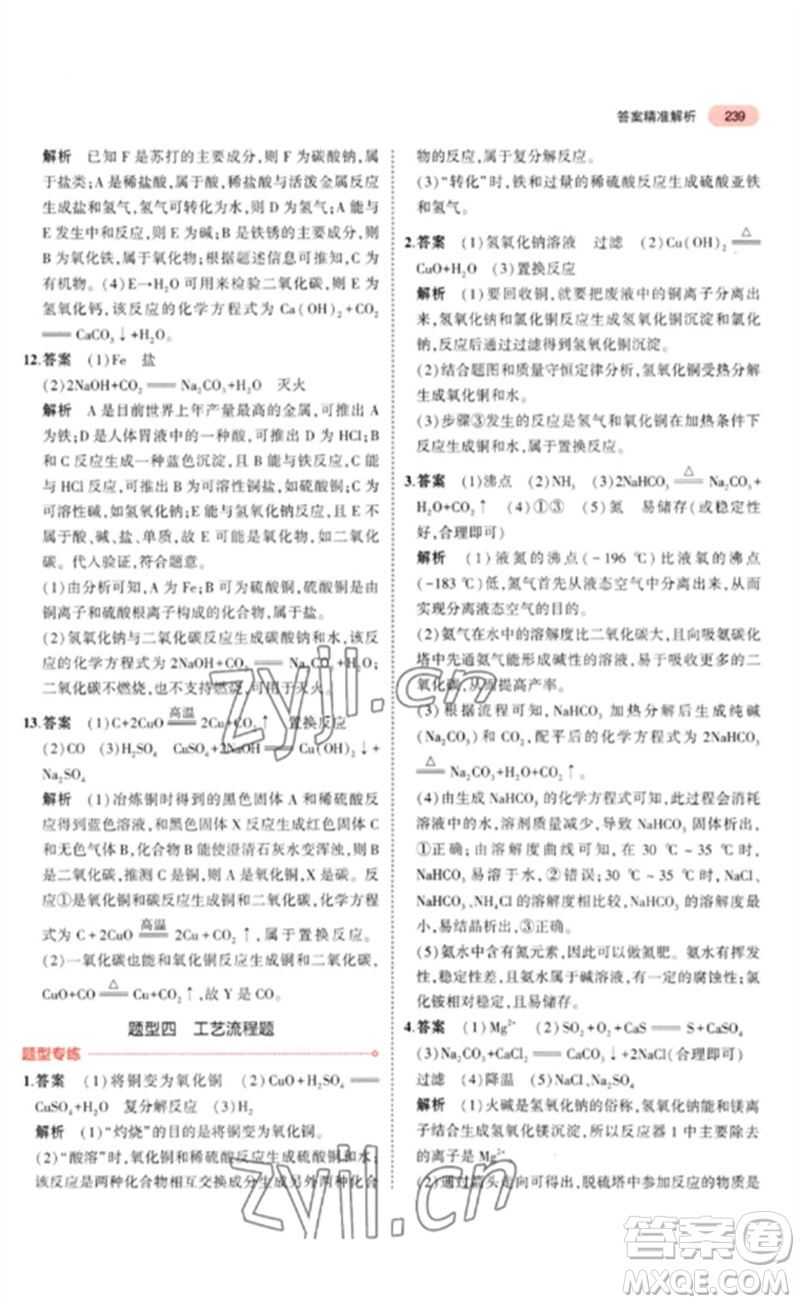 答案精准解析 239
解析 已知 F 是苏打的主要成分,则 F 为碳酸钠,属
于盐类;A 是稀盐酸,属于酸,稀盐酸与活泼金属反应
生成盐和氢气,氢气可转化为水,则 D 是氢气;A 能与
E 发生中和反应,则 E 为碱;B 是铁锈的主要成分,则
B 为氧化铁,属于氧化物,根据题述信息可知 C 属于
有机物。(4) E→H 可用来检验二氧化碳,则 E 为
氢氧化钙,该反应的化学方程式为 Ca(OH)₂+CO₂
══ CaCO₃↓+H₂O。
12.答案 (1)Fe 盐
(2)2NaOH+CO₂ ══ Na₂CO₃+H₂O 灭火
解析 A 是目前世界上年产量最高的金属,可推出 A
为铁;D 是人体胃液中的一种酸,可推出 D 为 HCl;B
和 C 反应生成一种蓝色沉淀,且能与铁反应,C 能
与 HCl 反应,可推出 B 为可溶性铜盐,如硫酸铜;C 为
可溶性碱,如氢氧化钠;E 能与氢氧化钠反应,且 E 不
是酸、盐、单质,故 E 为非金属氧化物,如二氧化
碳。代入验证,符合题意。
(1)由分析可知,A 为 Fe;B 为硫酸铜,硫酸铜是由
铜离子和硫酸根离子构成的化合物,属于盐。
(2)氢氧化钠与二氧化碳反应生成碳酸钠和水,该反
应的化学方程式为 2NaOH+CO₂ ══ Na₂CO₃+H₂O;
二氧化碳不燃烧,也不支持燃烧,可用于灭火。
13.答案 (1)C+2CuO ═高温═ 2Cu+CO₂↑ 置换反应
(2)CO (3)H₂SO₄ CuSO₄+2NaOH ══ Cu(OH)₂↓+
Na₂SO₄
解析 (1)冶炼铜时得到的黑色固体 A 和稀硫酸反
应得到蓝色溶液,和黑色固体 X 反应生成红色固体 C
和无色气体 B,无色气体 B 能使澄清石灰水变浑浊,则
B 是二氧化碳,推测 C 是铜,则 X 是碳,A 是氧化铜。
反应①是氧化铜和碳反应生成铜和二氧化碳,化学方程
式为 C+2CuO ═高温═ 2Cu+CO₂↑,属于置换反应。
(2)一氧化碳也能和氧化铜反应生成铜和二氧化碳,
CuO+CO ═△═ Cu+CO₂,故 Y 是 CO。
题型四 工艺流程题
题型专练
1.答案 (1)将铜变为氧化铜 (2)CuO+H₂SO₄ ══
CuSO₄+H₂O 复分解反应 (3)H₂
解析 (1)“灼烧”的目的是将铜变为氧化铜。
(2)“酸溶”时,氧化铜和稀硫酸反应生成硫酸铜和水;
该反应是两种化合物相互交换成分生成另外两种化合
物的反应,属于复分解反应。
(3)“转化”时,铁和过量的稀硫酸反应生成硫酸亚铁
和氢气。
2.答案 (1)氢氧化钠溶液 过滤 (2)Cu(OH)₂ ═△═
CuO+H₂O (3)置换反应
解析 (1)要回收铜,就要把废液中的铜离子分离出
来,氢氧化钠和氯化铜反应生成氢氧化铜沉淀和氯化
钠,反应后通过过滤得到氢氧化铜沉淀。
(2)结合题图和质量守恒定律分析,氢氧化铜受热分解
生成氧化铜和水。
(3)步骤③发生的反应是氢气和氧化铜在加热条件下
反应生成铜和水,属于置换反应。
3.答案 (1)沸点 (2)NH₃ (3)2NaHCO₃ ═△═ Na₂CO₃+
H₂O+CO₂↑ (4)①③ (5)氮 易储存(或稳定性
好,合理即可)
解析 (1)液氮的沸点(-196 ℃)比液氧的沸点
(-183 ℃)低,氮气首先从液态空气中分离出去,从而
实现分离液态空气的目的。
(2)氨气在水中的溶解度比二氧化碳大,且向吸氨碳化
塔中先通氨气能形成碱性的溶液,易吸收更多的二
氧化碳,从而提高产率。
(3)根据流程可知,NaHCO₃ 加热分解后生成纯碱
(Na₂CO₃)、水和 CO₂,配平后的化学方程式为 2NaHCO₃
═△═ Na₂CO₃+H₂O+CO₂↑。
(4)由生成 NaHCO₃ 的化学方程式可知,此过程会消耗
溶液中的水,溶剂质量减少,导致 NaHCO₃ 固体析出,
①正确;由溶解度曲线可知,在 30 ℃~35 ℃ 时,
NaHCO₃ 的溶解度最小,②错误;30 ℃~35 ℃ 时,NaCl、
NaHCO₃、NH₄Cl 的溶解度中 NaHCO₃ 的溶解度最小,
易结晶析出,③正确。
(5)氨水中含有氮元素,因此可以做氮肥。氨水有挥发
性,稳定性差,且氨水属于碱溶液,有一定的腐蚀性;氯
化铵固体稳定性好,易储存。
4.答案 (1)Mg²⁺ (2)SO₂+O₂+CaS ══ S+CaSO₄
(3)Na₂CO₃+CaCl₂ ══ CaCO₃↓+2NaCl
过滤 (4)降温 (5)Na₂SO₄
解析 (1)火碱是氢氧化钠的俗称,氢氧化钠能和镁离
子结合生成氢氧化镁沉淀,所以反应器 1 中主要除去
的离子是 Mg²⁺。
(2)通过箭头走向可得出,脱硫塔中参加反应的物质是
zyjl.cn
zyjl.cn
答案圈
MXQE.COM